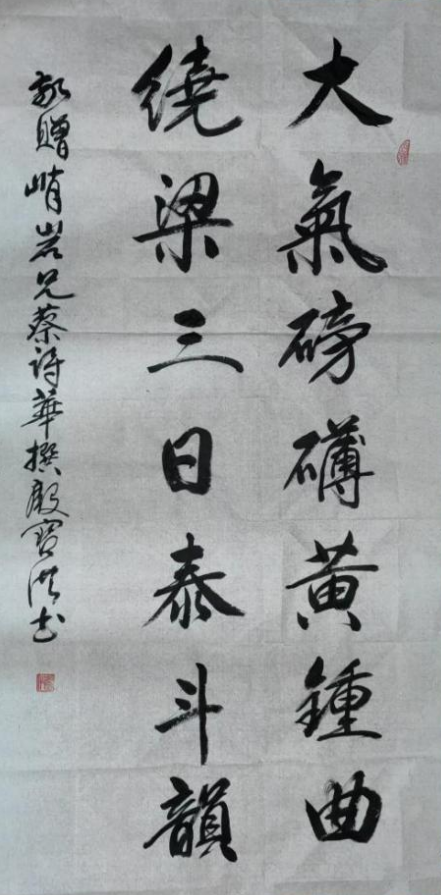 大氣磅礴黃鍾曲
繞梁三日泰斗韻
敬贈峭岩兄蔡詩華撰殷寶洪书